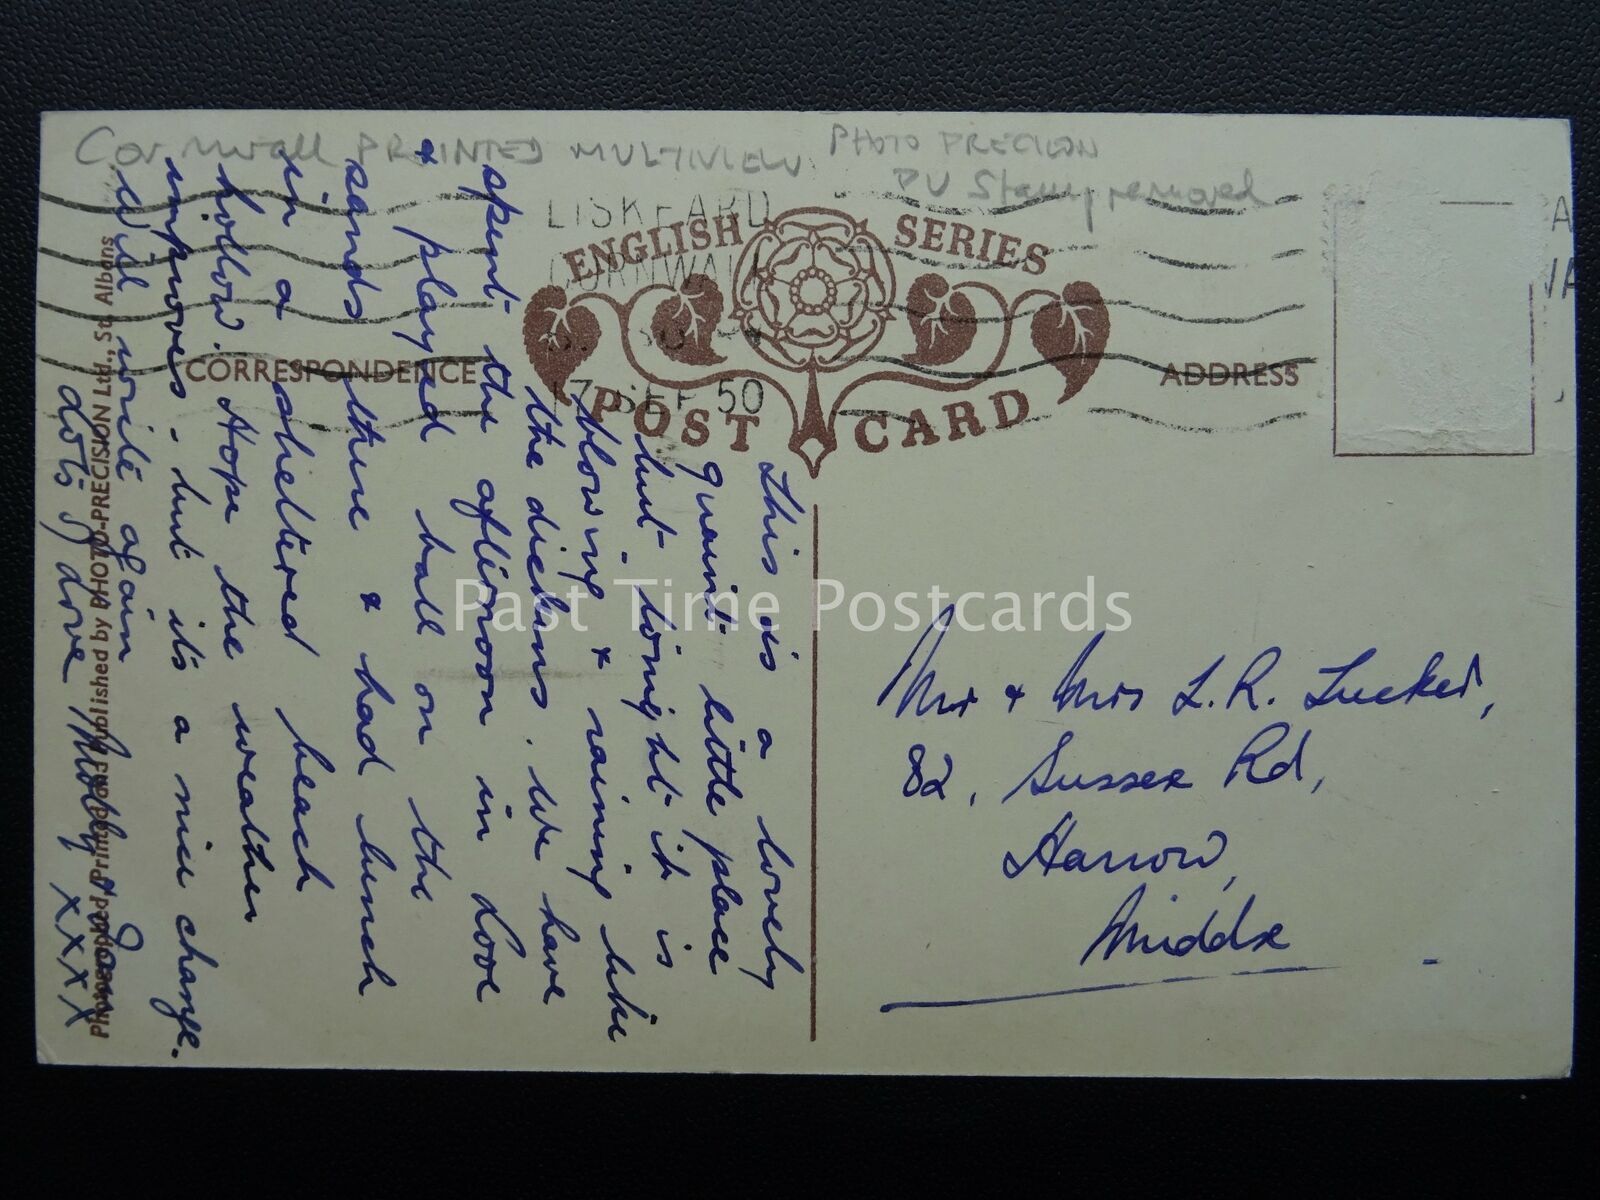 Cornwall PRINTED MULTIVIEW PHOTO PRECISION
PU Stamp removed
LISKEARD
CORNWALL
17 SEP 50
ENGLISH SERIES
POST CARD
CORRESPONDENCE
ADDRESS
This is a lovely
quaint little place
but tonight it is
blowing & raining like
the dickens. We have
spent the afternoon in Looe
& played ball on the
sands there & had lunch
in a sheltered beach
hollow. Hope the weather
improves - but it's a nice change.
Will write again
Lots of love Molly & 
x x x x
Mr & Mrs L. R. Tucker,
82, Sussex Rd,
Harrow,
Middx
Printed and Published by PHOTO-PRECISION Ltd., St. Albans
Past Time Postcards